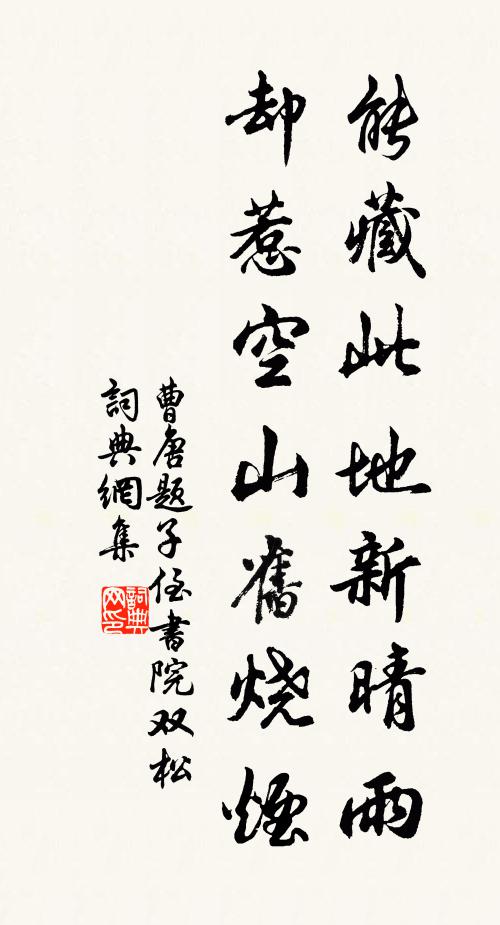 能藏此地新晴雨
却惹空山舊烧煙
曹唐题子侄書院双松
詞典網集
詞典
网印